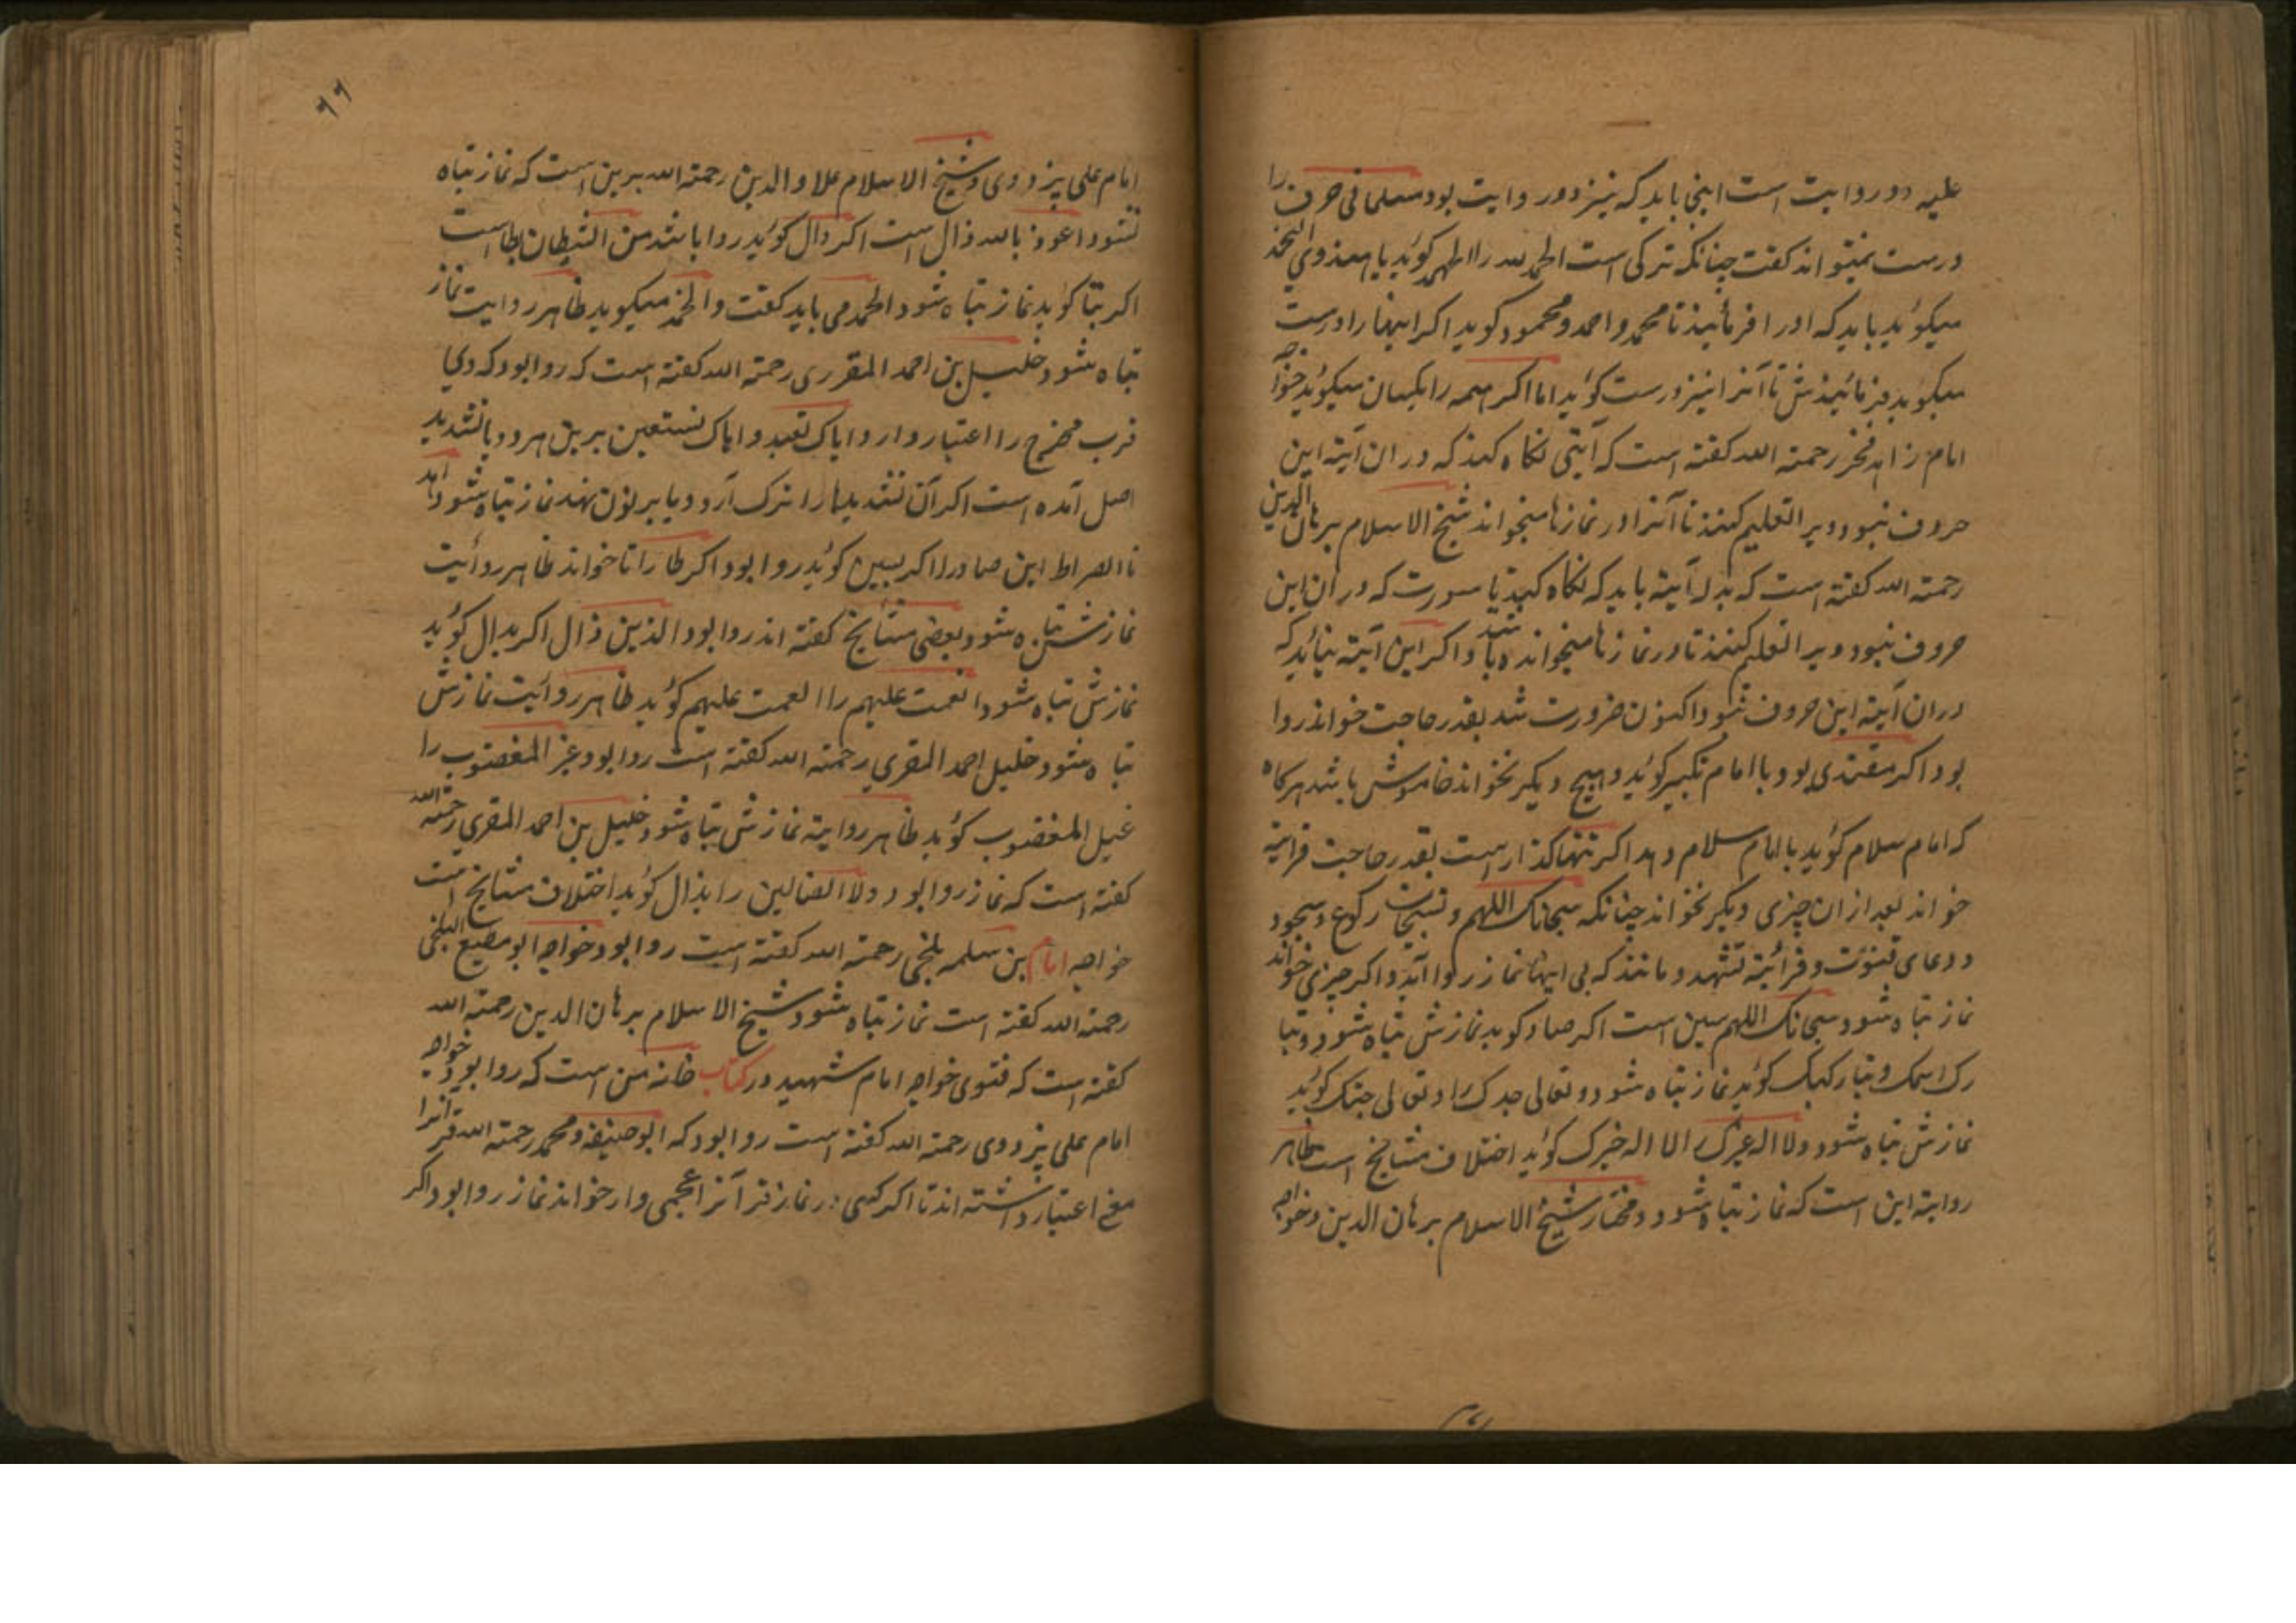 علیه دو روایت است اینجا باید که نیز دو روایت بود مسلما فی حرف را
درست نمیتواند کفت چنانکه ترکی است الحمد لله را الهمد کوید یا هندوی الخد
میکوید باید که اورا فرمائیند تا محمد و احمد و محمود کوید اکر اینها را درست
میکوید فرمائیندش تا آنرا نیز درست کوید اما اکر همه را یکسان میکوید خواجه
امام زاهد فخر رحمته الله کفته است که آیتی نکاه کنند که دران آیته این
حروف نبود ویرا تعلیم کنند تا آنرا در نمازها میخواند شیخ الاسلام برهان الدین
رحمته الله کفته است که بدل آیته باید که نکاه کنند تا سورت که دران این
حروف نبود ویرا تعلیم کنند تا در نمازها میخوانده باشد و اکر این آیته نیاید که
دران آیته این حروف نبود اکنون ضرورت شد بقدر حاجت خواند روا
بود اکر مقتدی بود با امام تکبیر کوید و هیچ دیکر نخواند خاموش باشد هرکاه
که امام سلام کوید با امام سلام دهد اکر تنها کذار است بقدر حاجت قرائیة
خواند بعد ازان چیزی دیکر نخواند چنانکه سبحانک اللهم و تسبیحات رکوع و سجود
و دعای قنوت و قرائیة تشهد و مانند که بی اینها نماز روا آید و اکر چیزی خواند
نماز تباه شود سبحانک اللهم سین است اکر صاد کوید نمازش تباه شود و تبا
رک اسمک و تبارکبک کوید نماز تباه شود و تعالی جدک را و تعالی جتک کوید
نمازش تباه شود و لا اله غیرک را لا اله خیرک کوید اختلاف مشایخ است ظاهر
روایته این است که نماز تباه شود و مختار شیخ الاسلام برهان الدین و خواجه
٦٦
امام علی پزدوی و شیخ الاسلام علاو الدین رحمته الله برین است که نماز تباه
نشود اعوذ بالله ذال است اکر دال کوید روا باشد من الشیطان بطا است
اکر بتا کوید نماز تباه شود الحمد می باید کفت و الخمد میکوید ظاهر روایت نماز
تباه شود خلیل بن احمد المقرری رحمته الله کفته است که روا بود که وی
قرب مخرج را اعتبار دارد ایاک نعبد و ایاک نستعین برین هر دو یا تشدید
اصل آمده است اکر آن تشدیدها را ترک آرد و یا بر نون نهد نماز تباه شود اهد
نا الصراط این صاد را اکر بسین کوید روا بود اکر طا را تا خواند ظاهر روایت
نمازش تباه شود و بعضی مشایخ کفته اند روا بود الذین ذال اکر بدال کوید
نمازش تباه شود انعمت علیهم را العمت علیهم کوید ظاهر روایت نمازش
تباه شود خلیل احمد المقری رحمته الله کفته است روا بود غیر المغضوب را
غیل المغضوب کوید ظاهر روایته نمازش تباه شود خلیل بن احمد المقری رحمته الله
کفته است که نماز روا بود و لا الضالین را بذال کوید اختلاف مشایخ است
خواجه امام بن سلمه بلخی رحمته الله کفته است روا بود خواجه ابو مطیع البلخی
رحمته الله کفته است نماز تباه شود شیخ الاسلام برهان الدین رحمته الله
کفته است که فتوی خواجه امام شهید در کتاب خانه من است که روا بود خواجه
امام علی پزدوی رحمته الله کفته است روا بود که ابو حنیفه و محمد رحمته الله قرأترا
مع اعتبار داشته اند تا اکر کسی در نماز قرآنرا عجمی وار خواند نماز روا بود اکر